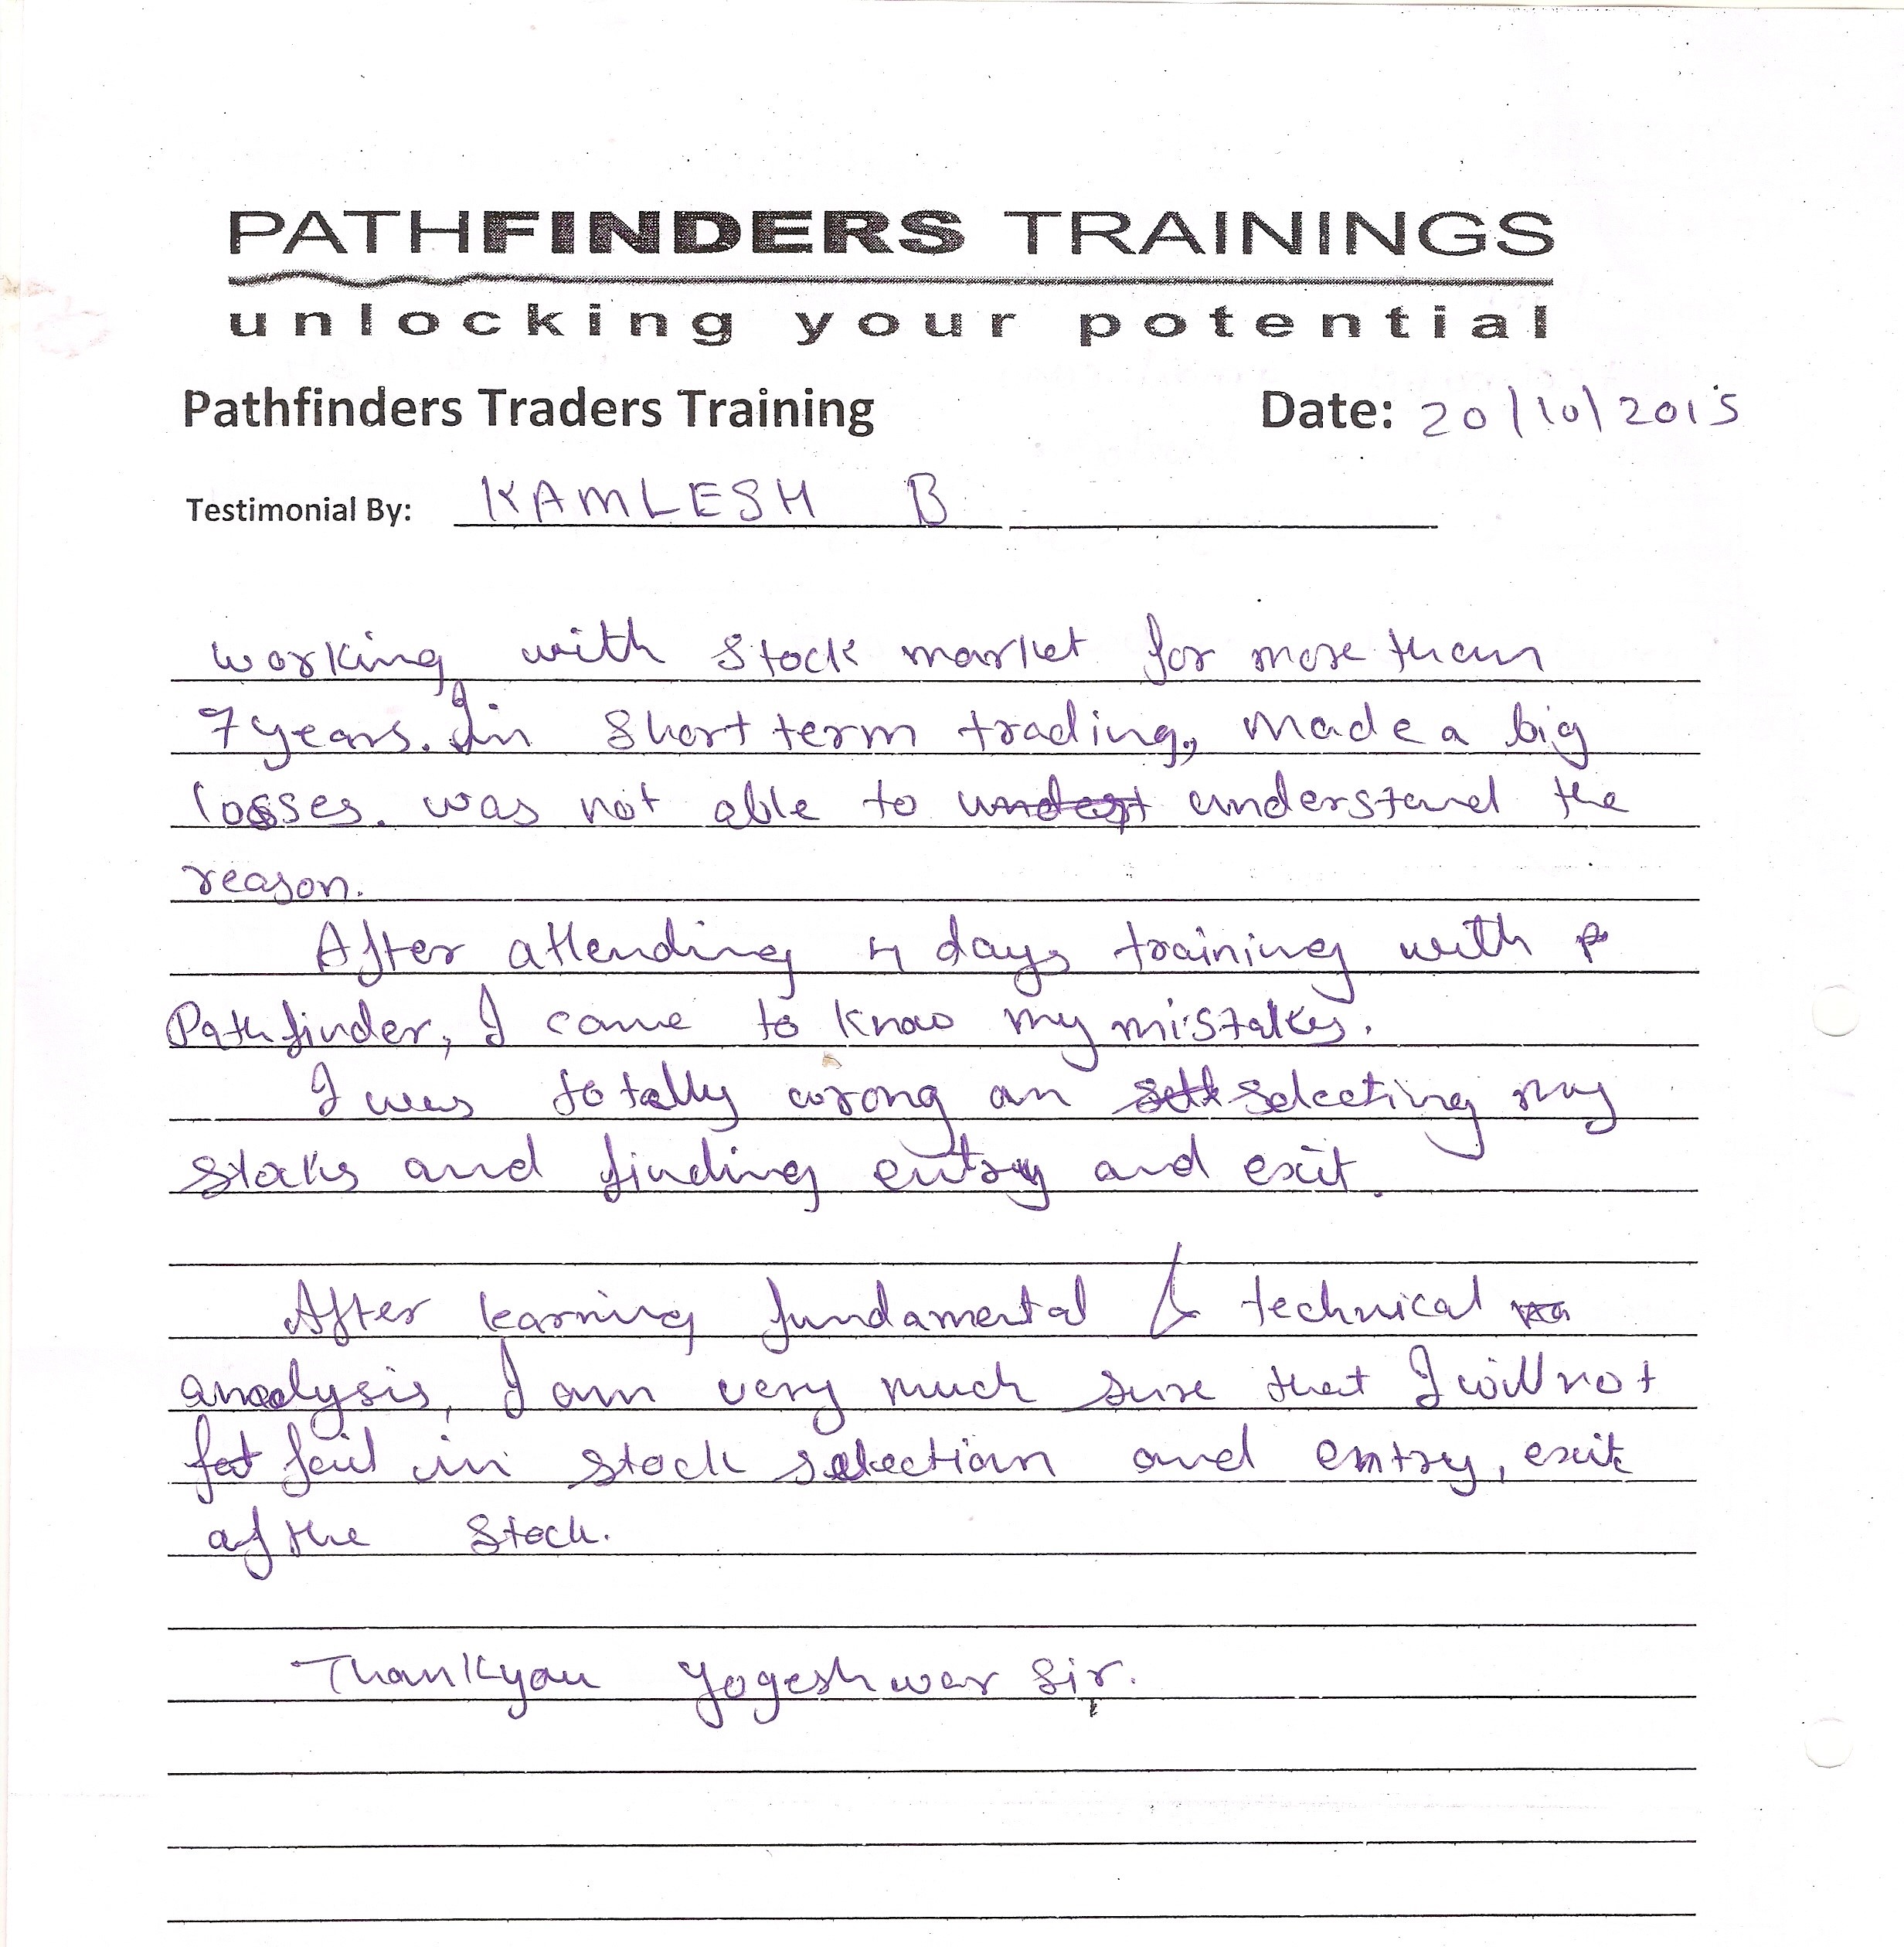 PATHFINDERS TRAININGS
unlocking your potential
Pathfinders Traders Training Date: 20/10/2015
Testimonial By: KAMLESH B
working with stock market for more than
7 years. In short term trading, made a big
losses. was not able to understand the
reason.
After attending 4 days training with
Pathfinder, I came to know my mistakes.
I was totally wrong on selecting my
stocks and finding entry and exit.
After learning fundamental & technical
analysis, I am very much sure that I will not
fail in stock selection and entry, exit
of the stock.
Thankyou Yogeshwar Sir.